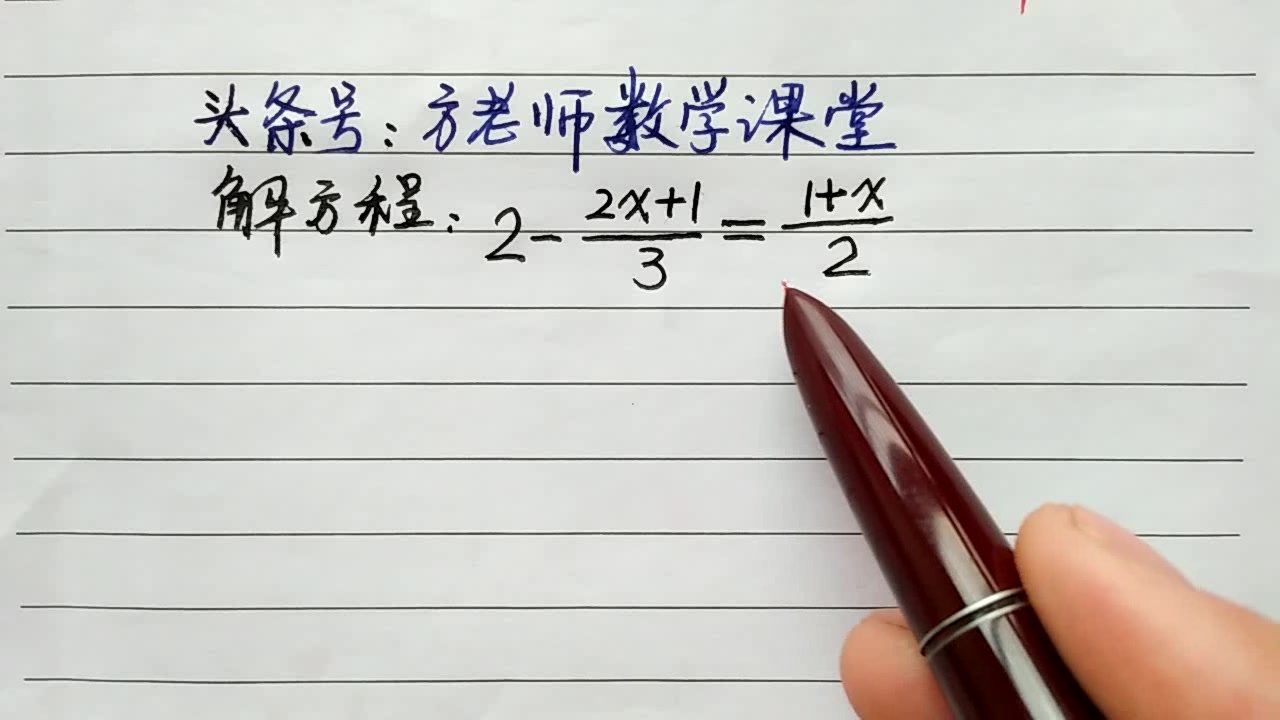 头条号:方老师数学课堂
解方程:2-\frac{2x+1}{3}=\frac{1+x}{2}